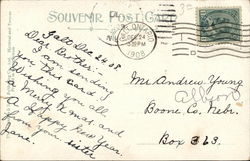 SOUVENIR POST CARD
Dec 24 08
Dear Brother
I am sending
you this card
Wishing you all
a Merry Xmas and
A Happy New Year.
from your sister
Jane.
1908
Mr Andrew Young
Albion
Boone Co, Nebr.
Box 363.